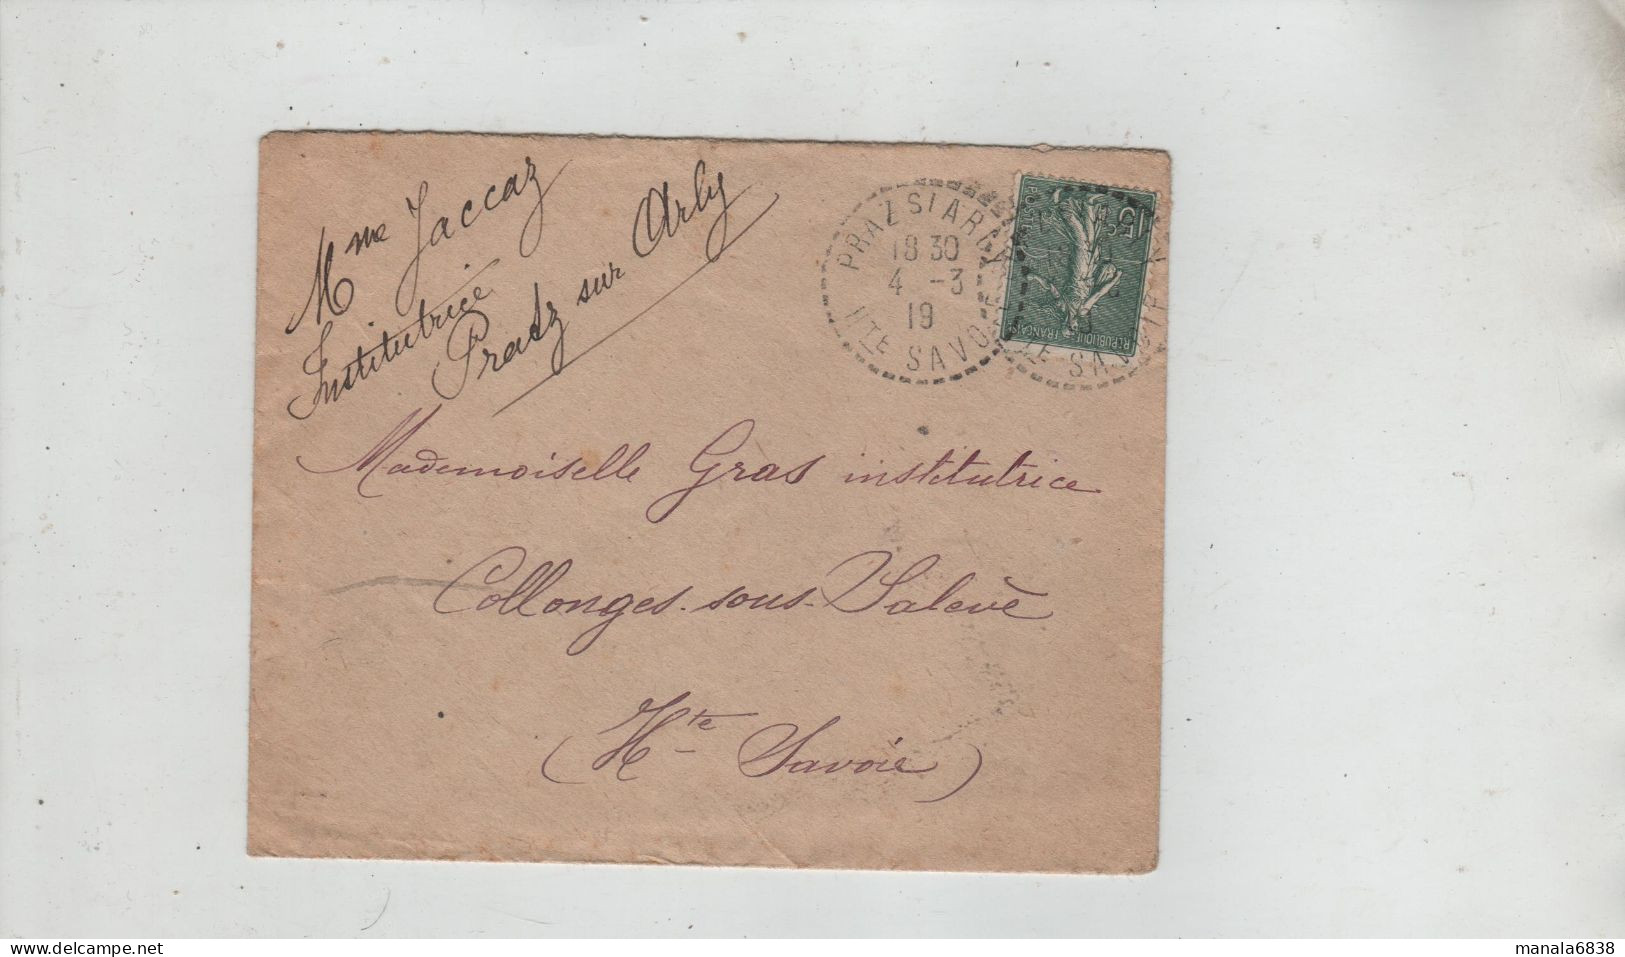 Mme Jaccaz
Institutrice
Pradz sur Arly
PRAZ S/ ARLY
18 30
4 -3
19
HTE SAVOIE
15c
POSTES
REPUBLIQUE FRANÇAISE
HTE SAVOIE
Mademoiselle Gras institutrice
Collonges-sous-Salève
(Hte Savoie)
www.delcampe.net
manala6838